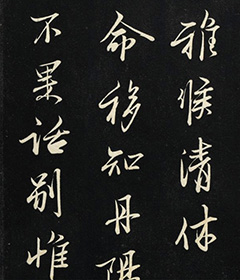 雅候清休
命移知丹陽
不果话别惟